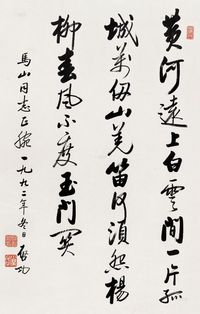 黄河遠上白雲間一片孤
城萬仞山羌笛何須怨楊
柳春風不度玉門關
馬山同志正腕 一九九二年冬日 啟功